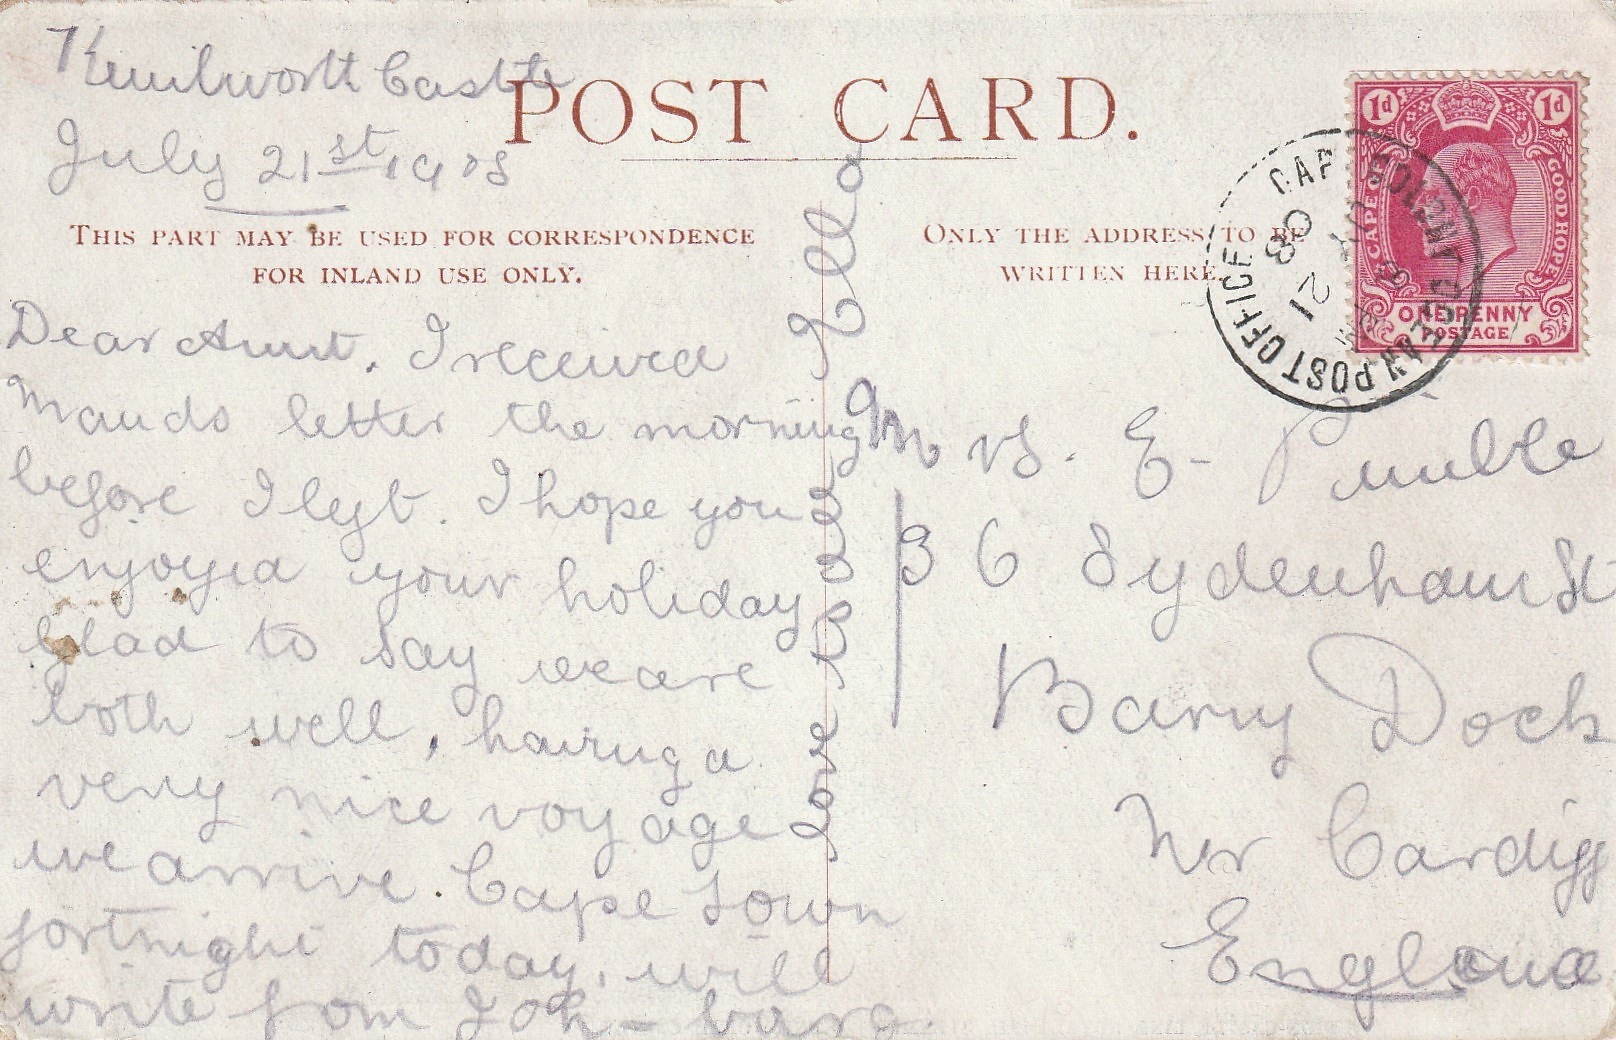 Kenilworth Castle
July 21st 1908
POST CARD.
THIS PART MAY BE USED FOR CORRESPONDENCE
FOR INLAND USE ONLY.
ONLY THE ADDRESS TO BE
WRITTEN HERE.
Dear Aunt. I received
Mauds letter the morning
before I left. I hope you
enjoyed your holiday
Glad to say we are
both well, having a
very nice voyage
we arrive Cape Town
fortnight today, will
write from Joh-burg.
Mrs. E.
36 Sydenham St
Barry Dock
Nr Cardiff
England
1d
1d
CAPE OF
GOOD HOPE
ONE PENNY
POSTAGE
OCEAN POST OFFICE CAPE COLONY
JY 21
08